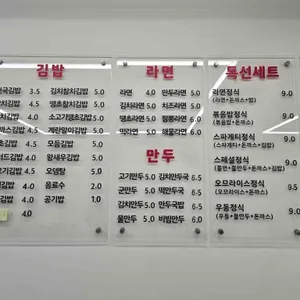 김밥
김밥 3.5 김치참치김밥 5.0
김밥 4.5 땡초참치김밥 5.0
4.5 소고기땡초김밥 5.0
김밥 4.5 계란말이김밥 5.0
김밥 4.5 모듬김밥 5.0
김밥 4.0 왕새우김밥 5.0
김밥 4.0 오뎅탕 5.0
김밥 4.0 음료수 2.0
김밥 4.0 공기밥 1.0
4.0
라면
라면 4.0 만두라면 5.0
김치라면 5.0 치즈라면 5.0
땡초라면 5.0 짬뽕라면 6.0
떡라면 5.0 해물라면 6.0
만두
고기만두 5.0 김치만두국 6.5
군만두 5.0 떡만두국 6.5
김치만두 5.0 만두국밥 6.5
물만두 5.0 비빔만두 6.0
특선세트
라면정식 9.0
(라면+돈까스+밥)
볶음밥정식 9.0
(볶음밥+돈까스)
스파게티정식 9.0
(스파게티+돈까스+김밥)
스페셜정식 9.0
(쫄면+돈까스+김밥)
오므라이스정식 9.5
(오므라이스+돈까스)
우동정식 9.0
(우동+물만두+돈까스)